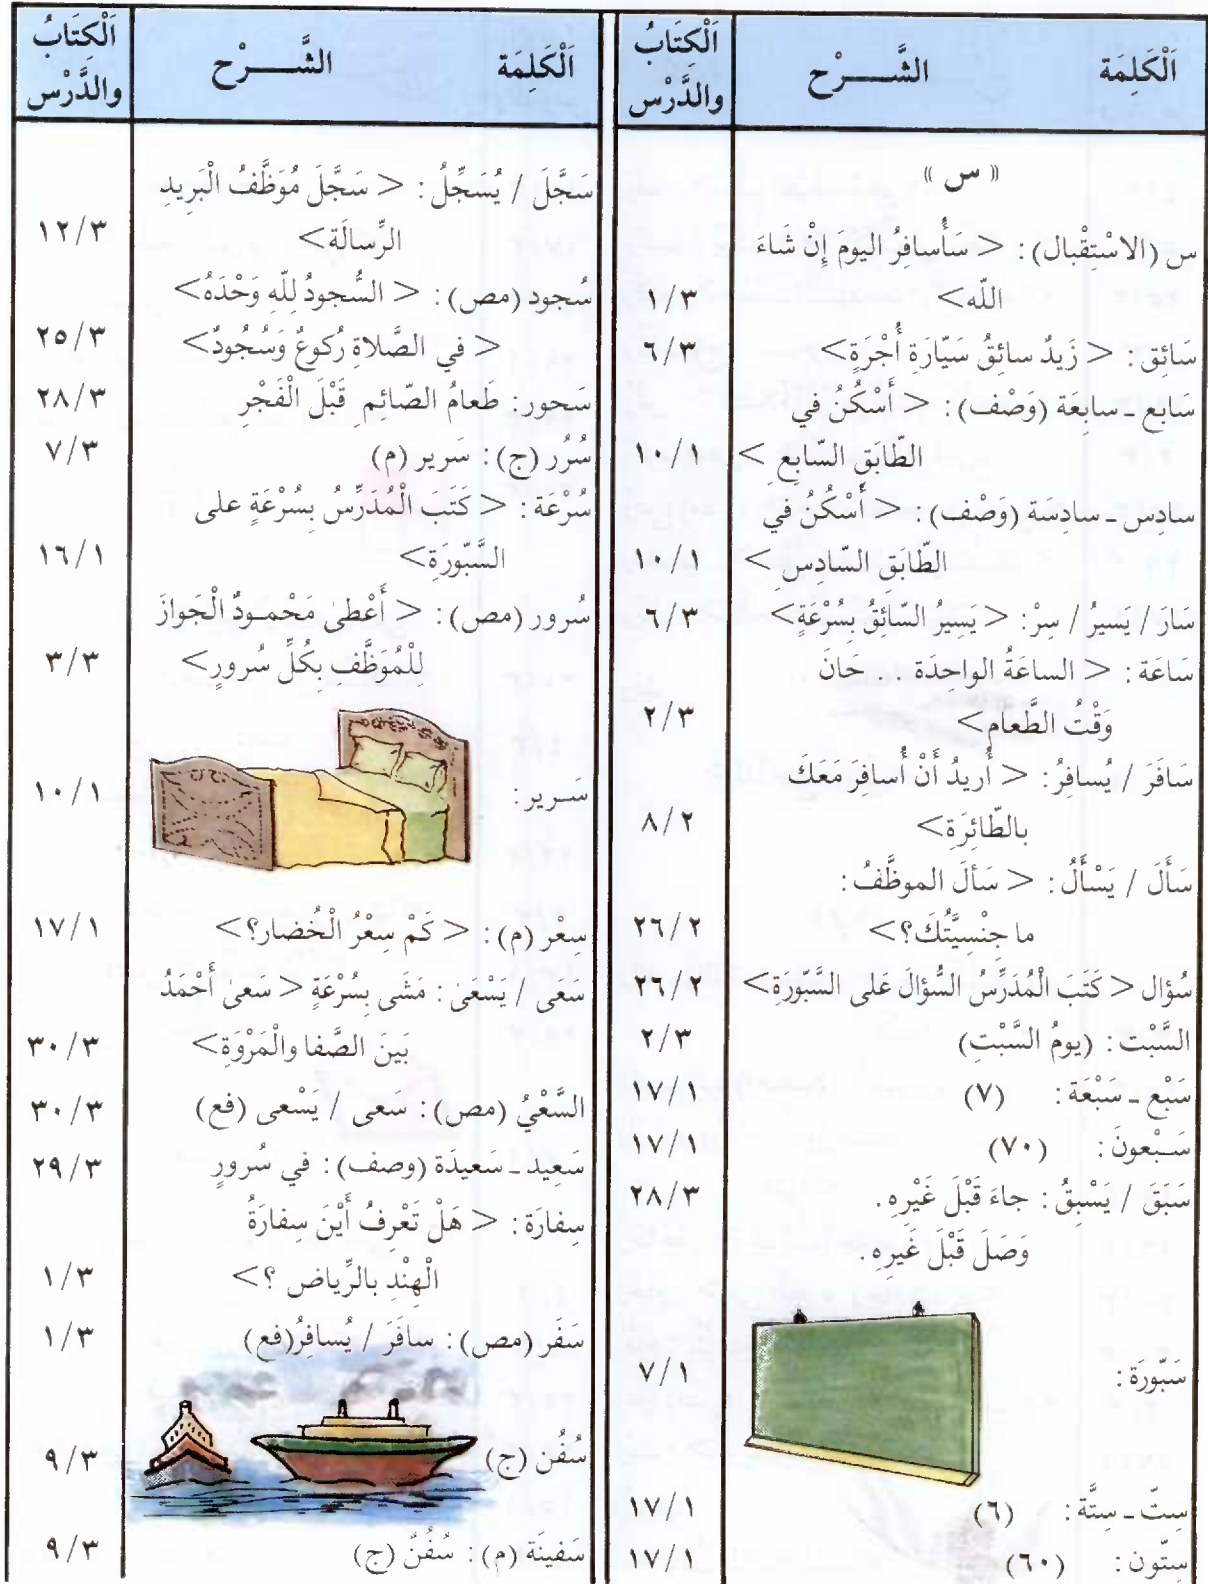 اَلْكَلِمَة الشَّـــرْح اَلْكِتَابُ والدَّرْس
« س »
س (الاسْتِقْبال) : < سَأُسافِرُ اليومَ إِنْ شَاءَ
اللّه> ١/٣
سَائِق : < زَيدٌ سائِقُ سَيّارَةِ أُجْرَةٍ> ٦/٣
سابع ـ سابِعَة (وَصْف) : < أَسْكُنُ في
الطّابَقِ السّابِعِ > ١٠/١
سادِس ـ سادِسَة (وَصْف) : < أَسْكُنُ في
الطّابَقِ السّادِسِ > ١٠/١
سَارَ / يَسيرُ / سِرْ : < يَسِيرُ السّائِقُ بِسُرْعَةٍ> ٦/٣
سَاعَة : < الساعَةُ الواحِدَة . . حَانَ
وَقْتُ الطَّعام> ٢/٣
سَافَرَ / يُسافِرُ : < أُريدُ أَنْ أُسافِرَ مَعَكَ
بالطّائِرَةِ> ٨/٢
سَأَلَ / يَسْأَلُ : < سَأَلَ الموظَّفُ :
ما جِنْسِيَّتُكَ؟> ٢٦/٢
سُؤال < كَتَبَ الْمُدَرِّسُ السُّؤالَ عَلى السَّبّورَةِ> ٢٦/٢
السَّبْت : (يومُ السَّبْتِ) ٢/٣
سَبْع ـ سَبْعَة : (٧) ١٧/١
سَـبْعونَ : (٧٠) ١٧/١
سَبَقَ / يَسْبِقُ : جاءَ قَبْلَ غَيْرِهِ . ٢٨/٣
وَصَلَ قَبْلَ غَيرِهِ .
سَبّورَة : ٧/١
سِتّ ـ سِتَّة : (٦) ١٧/١
سِتّون : (٦٠) ١٧/١
اَلْكَلِمَة الشَّـــرْح اَلْكِتَابُ والدَّرْس
سَجَّلَ / يُسَجِّلُ : < سَجَّلَ مُوَظَّفُ الْبَرِيدِ
الرِّسالَة> ١٢/٣
سُجود (مص) : < السُّجودُ لِلّهِ وَحْدَهُ>
< في الصَّلاةِ رُكوعٌ وَسُجُودٌ> ٢٥/٣
سَحور : طَعامُ الصّائِمِ قَبْلَ الْفَجْرِ ٢٨/٣
سُرُر (ج) : سَرير (م) ٧/٣
سُرْعَة : < كَتَبَ الْمُدَرِّسُ بِسُرْعَةٍ على
السَّبّورَةِ> ١٦/١
سُرور (مص) : < أَعْطىٰ مَحْمـودٌ الْجَوازَ
لِلْمُوَظَّفِ بِكُلِّ سُرورٍ> ٣/٣
سَـرير : ١٠/١
سِعْر (م) : < كَمْ سِعْرُ الْخُضار؟> ١٧/١
سَعَى / يَسْعَىٰ : مَشَى بِسُرْعَةٍ < سَعىٰ أَحْمَدُ
بَينَ الصَّفا والْمَرْوَةِ> ٣٠/٣
السَّعْيُ (مص) : سَعى / يَسْعى (فع) ٣٠/٣
سَعِيد ـ سَعيدَة (وصف) : في سُرورٍ ٢٩/٣
سِفارَة : < هَلْ تَعْرِفُ أَيْنَ سِفارَةُ
الْهِنْدِ بالرِّياض ؟> ١/٣
سَفَر (مص) : سافَرَ / يُسافِرُ(فع) ١/٣
سُفُن (ج) ٩/٣
سَفينَة (م) : سُفُنٌ (ج) ٩/٣